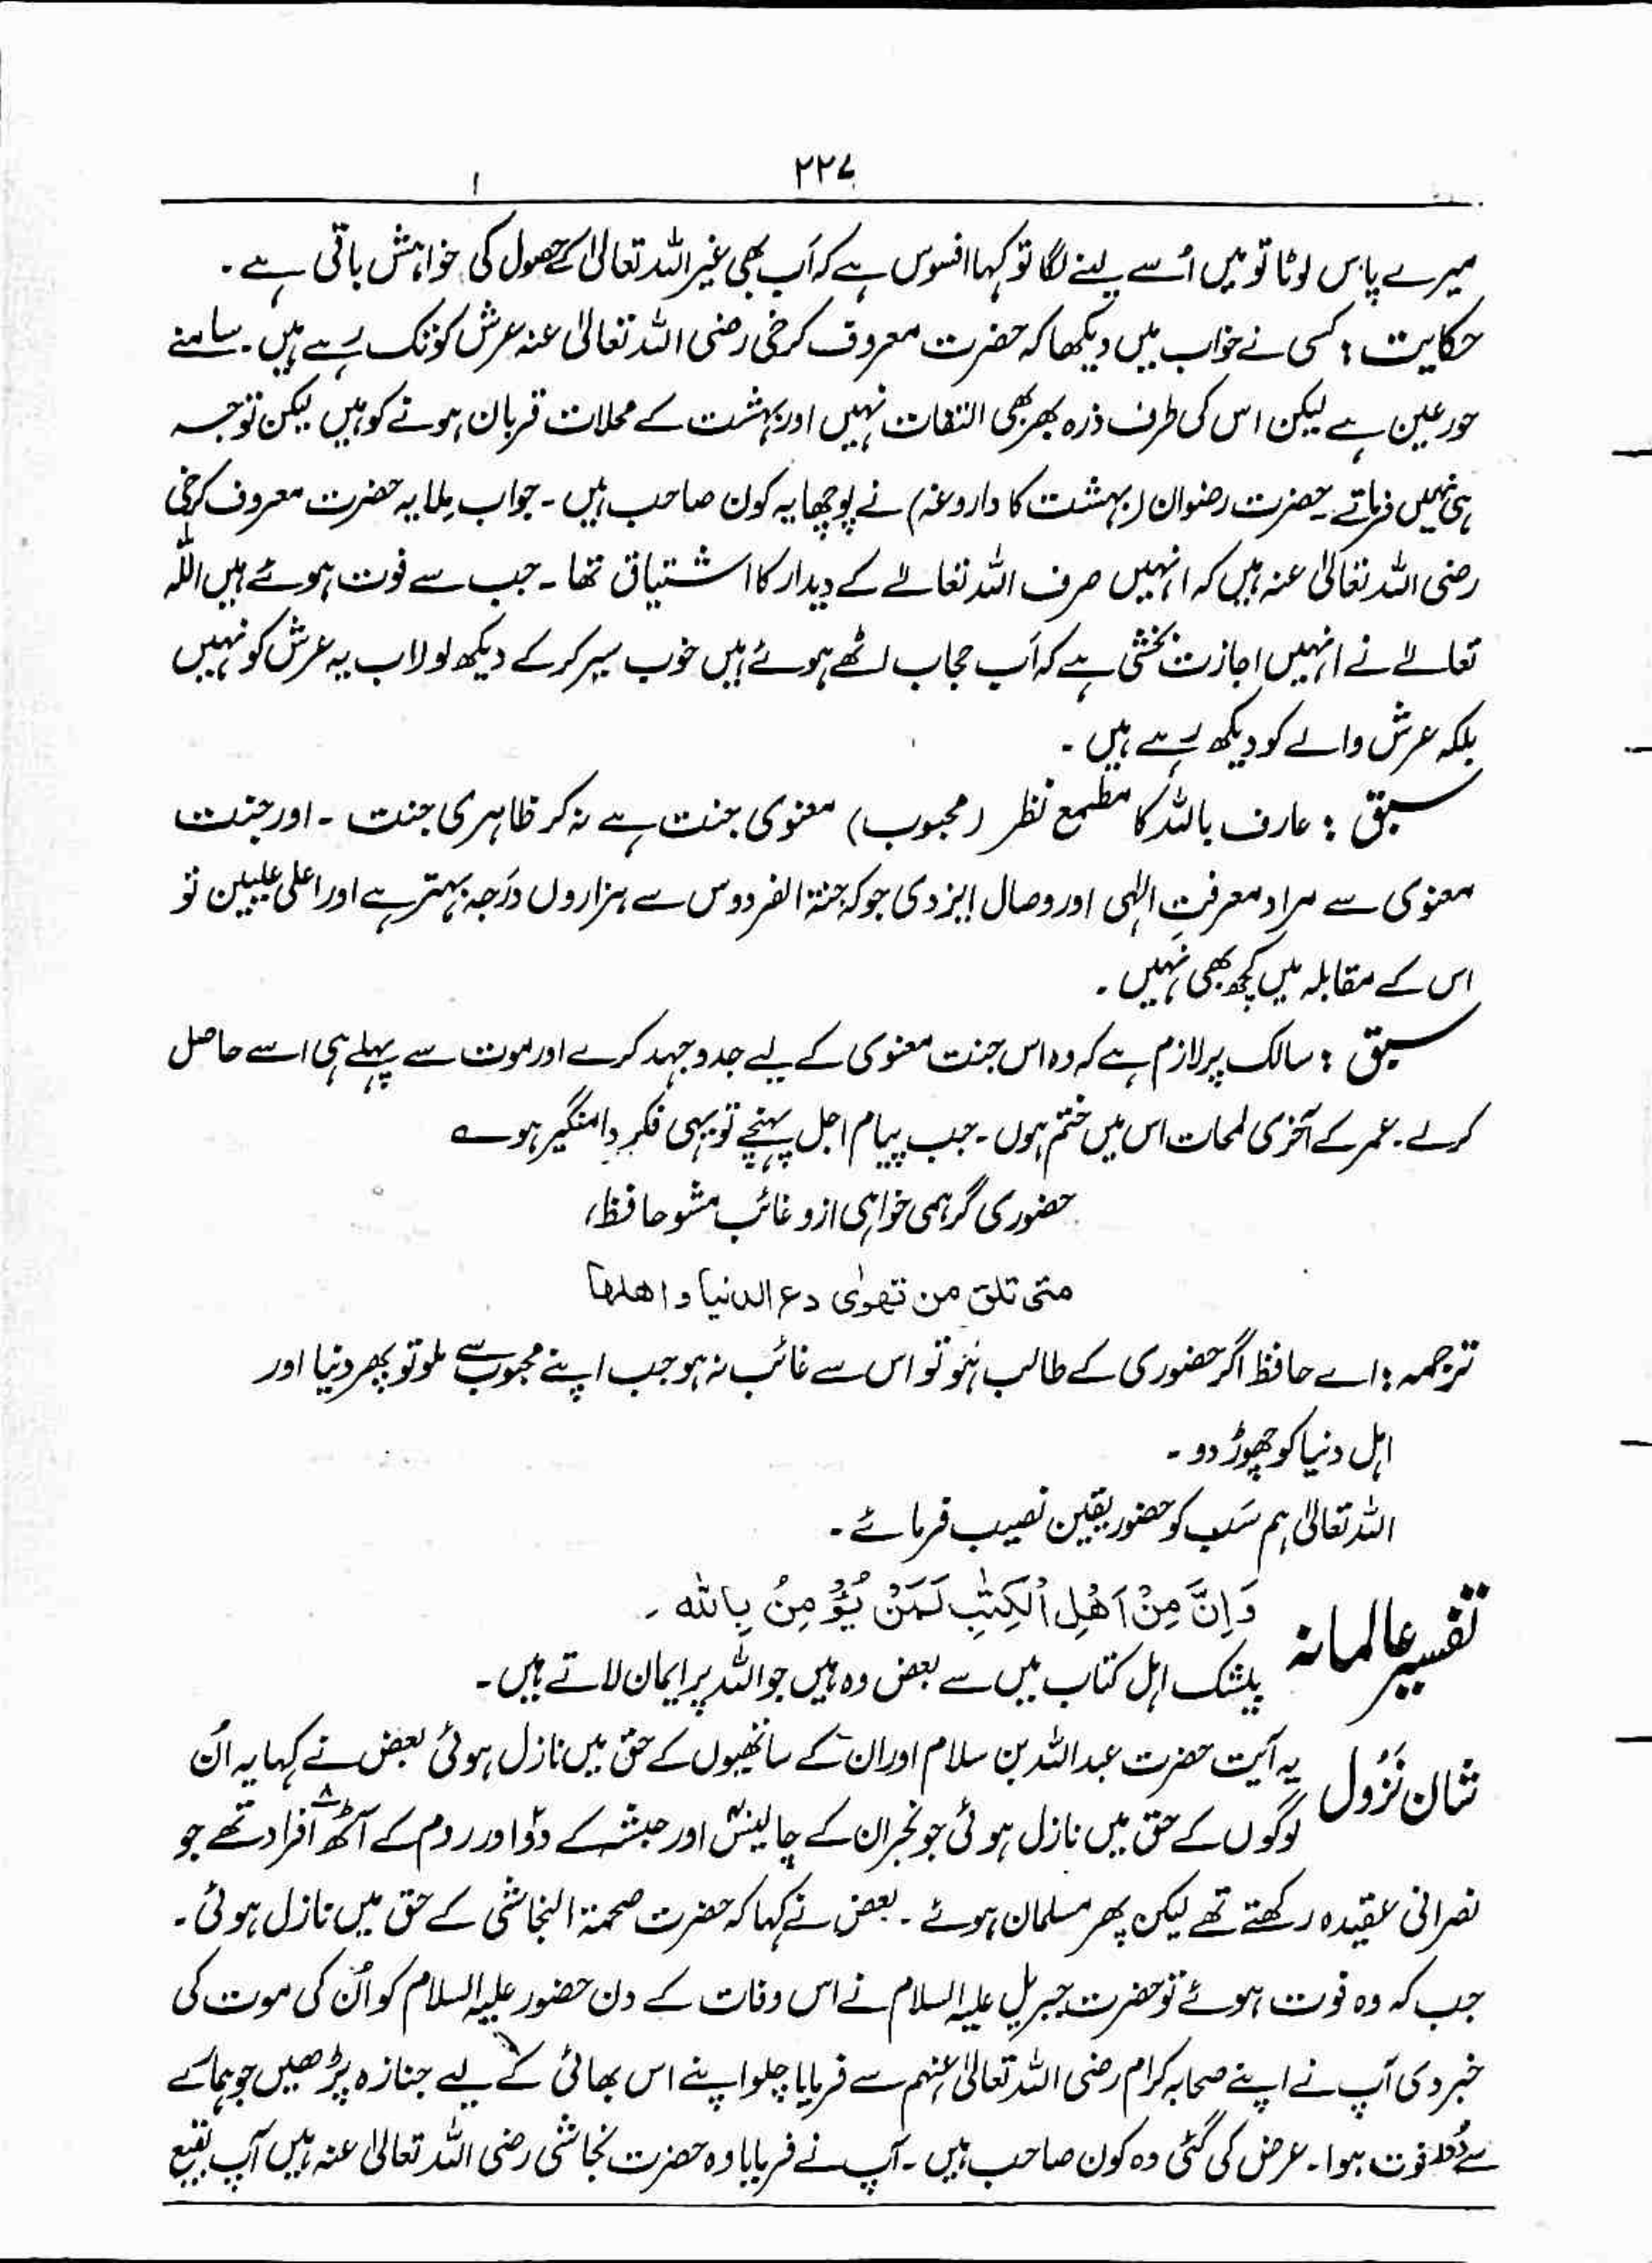 ۲۲۷
میرے پاس لوٹا تو میں اُسے لینے لگا تو کہا افسوس ہے کہ اَب بھی غیر اللہ تعالیٰ کے حصول کی خواہش باقی ہے ۔
حکایت : کسی نے خواب میں دیکھا کہ حضرت معروف کرخی رضی اللہ تعالیٰ عنہ عرش کو تک رہے ہیں ۔ سامنے
حور عین ہے لیکن اس کی طرف ذرہ بھر بھی التفات نہیں اور بہشت کے محلات قربان ہونے کو ہیں لیکن توجہ
ہی نہیں فرماتے ۔ حضرت رضوان (بہشت کا داروغہ) نے پوچھا یہ کون صاحب ہیں ۔ جواب مِلا یہ حضرت معروف کرخی
رضی اللہ تعالیٰ عنہ ہیں کہ انہیں صرف اللہ تعالےٰ کے دیدار کا اشتیاق تھا ۔ جب سے فوت ہوئے ہیں اللہ
تعالےٰ نے انہیں اجازت بخشی ہے کہ اَب حجاب اٹھے ہوئے ہیں خوب سیر کر کے دیکھ لو لااب یہ عرش کو نہیں
بلکہ عرش والے کو دیکھ رہے ہیں ۔
سبق : عارف باللہ کا مطمع نظر (محبوب) معنوی جنت ہے نہ کہ ظاہری جنت ۔ اور جنت
معنوی سے مراد معرفتِ الٰہی اور وصال ایزدی جو کہ جنۃ الفردوس سے ہزاروں دَرجہ بہتر ہے اور اعلیٰ علیین تو
اس کے مقابلہ میں کچھ بھی نہیں ۔
سبق : سالک پر لازم ہے کہ وہ اس جنت معنوی کے لیے جدوجہد کرے اور موت سے پہلے ہی اسے حاصل
کرلے ۔ عمر کے آخری لمحات اس میں ختم ہوں ۔ جب پیام اجل پہنچے تو یہی فکر دامنگیر ہو ؎
حضوری گر ہمی خواہی ازو غائب مشو حافظ،
متی تلق من تھوٰی دع الدنیا و اھلھا
ترجمہ : اے حافظ اگر حضوری کے طالب ہو تو اس سے غائب نہ ہو جب اپنے محبوب سے ملو تو پھر دنیا اور
اہل دنیا کو چھوڑ دو ۔
اللہ تعالیٰ ہم سَب کو حضور یقین نصیب فرمائے ۔
تفسیر عالمانہ وَاِنَّ مِنْ اَھْلِ الْکِتٰبِ لَمَنْ یُّؤْمِنُ بِاللہ ۔
بیشک اہل کتاب میں سے بعض وہ ہیں جو اللہ پر ایمان لاتے ہیں ۔
شان نَزُول یہ آیت حضرت عبد اللہ بن سلام اور ان کے ساتھیوں کے حق میں نازل ہوئی بعض نے کہا یہ اُن
لوگوں کے حق میں نازل ہوئی جو نجران کے چالیس اور حبشہ کے دو اور روم کے آٹھ ۸ افراد تھے جو
نصرانی عقیدہ رکھتے تھے لیکن پھر مسلمان ہوئے ۔ بعض نے کہا کہ حضرت صحمۃ النجاشی کے حق میں نازل ہوئی ۔
جب کہ وہ فوت ہوئے تو حضرت جبریل علیہ السلام نے اس وفات کے دن حضور علیہ السلام کو اُن کی موت کی
خبر دی آپ نے اپنے صحابہ کرام رضی اللہ تعالیٰ عنہم سے فرمایا چلو اپنے اس بھائی کے لیے جنازہ پڑھیں جو ہمارے
سے دُور فوت ہوا ۔ عرض کی گئی وہ کون صاحب ہیں ۔ آپ نے فرمایا وہ حضرت نجاشی رضی اللہ تعالیٰ عنہ ہیں آپ بقیع